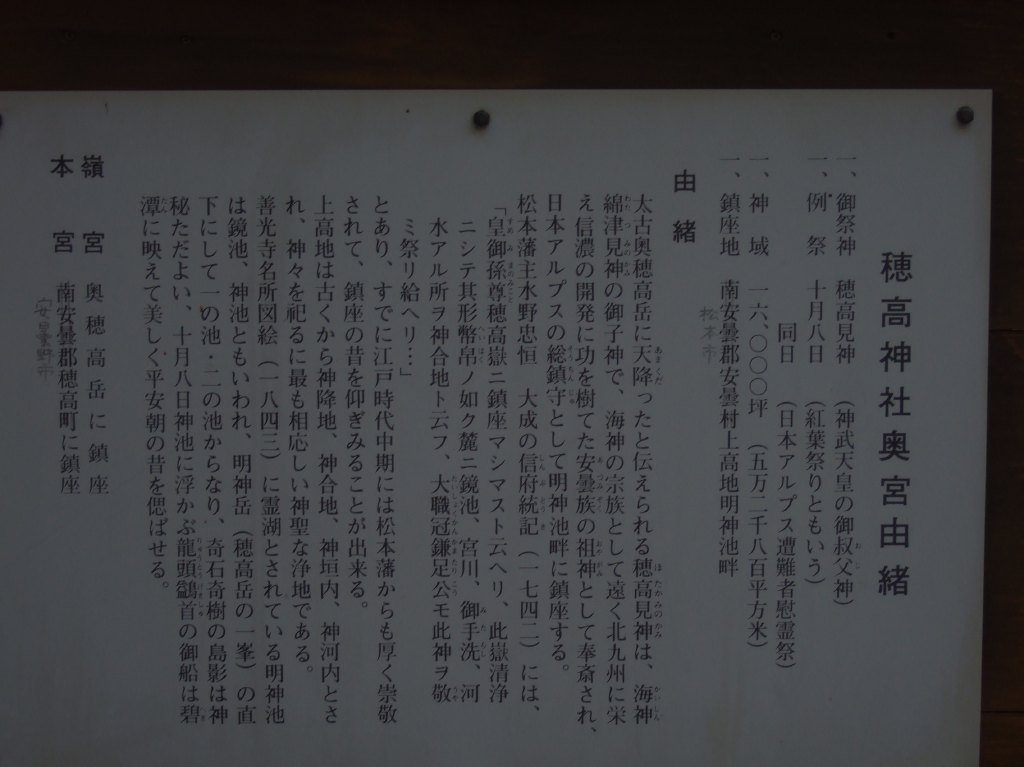 穂高神社奥宮由緒
一、御祭神　穂高見神　（神武天皇の御叔父神）
一、例　祭　十月八日　（紅葉祭りともいう）
同日　（日本アルプス遭難者慰霊祭）
一、神　域　一六、〇〇〇坪　（五万二千八百平方米）
一、鎮座地　南安曇郡安曇村上高地明神池畔
松本市
由　緒
太古奥穂高岳に天降ったと伝えられる穂高見神は、海神
綿津見神の御子神で、海神の宗族として遠く北九州に栄
え信濃の開発に功を樹てた安曇族の祖神として奉斎され、
日本アルプスの総鎮守として明神池畔に鎮座する。
松本藩主水野忠恒　大成の信府統記（一七四二）には、
「皇御孫尊穂高嶽ニ鎮座マシマスト云ヘリ、此嶽清浄
ニシテ其形幣帛ノ如ク麓ニ鏡池、宮川、御手洗、河
水アル所ヲ神合地ト云フ、大職冠鎌足公モ此神ヲ敬
ミ祭リ給ヘリ…」
とあり、すでに江戸時代中期には松本藩からも厚く崇敬
されて、鎮座の昔を仰ぎみることが出来る。
上高地は古くから神降地、神合地、神垣内、神河内とさ
れ、神々を祀るに最も相応しい神聖な浄地である。
善光寺名所図絵（一八四三）に霊湖とされている明神池
は鏡池、神池ともいわれ、明神岳（穂高岳の一峯）の直
下にして一の池・二の池からなり、奇石奇樹の島影は神
秘ただよい、十月八日神池に浮かぶ龍頭鷁首の御船は碧
潭に映えて美しく平安朝の昔を偲ばせる。
嶺　宮　奥穂高岳に鎮座
本　宮　南安曇郡穂高町に鎮座
安曇野市